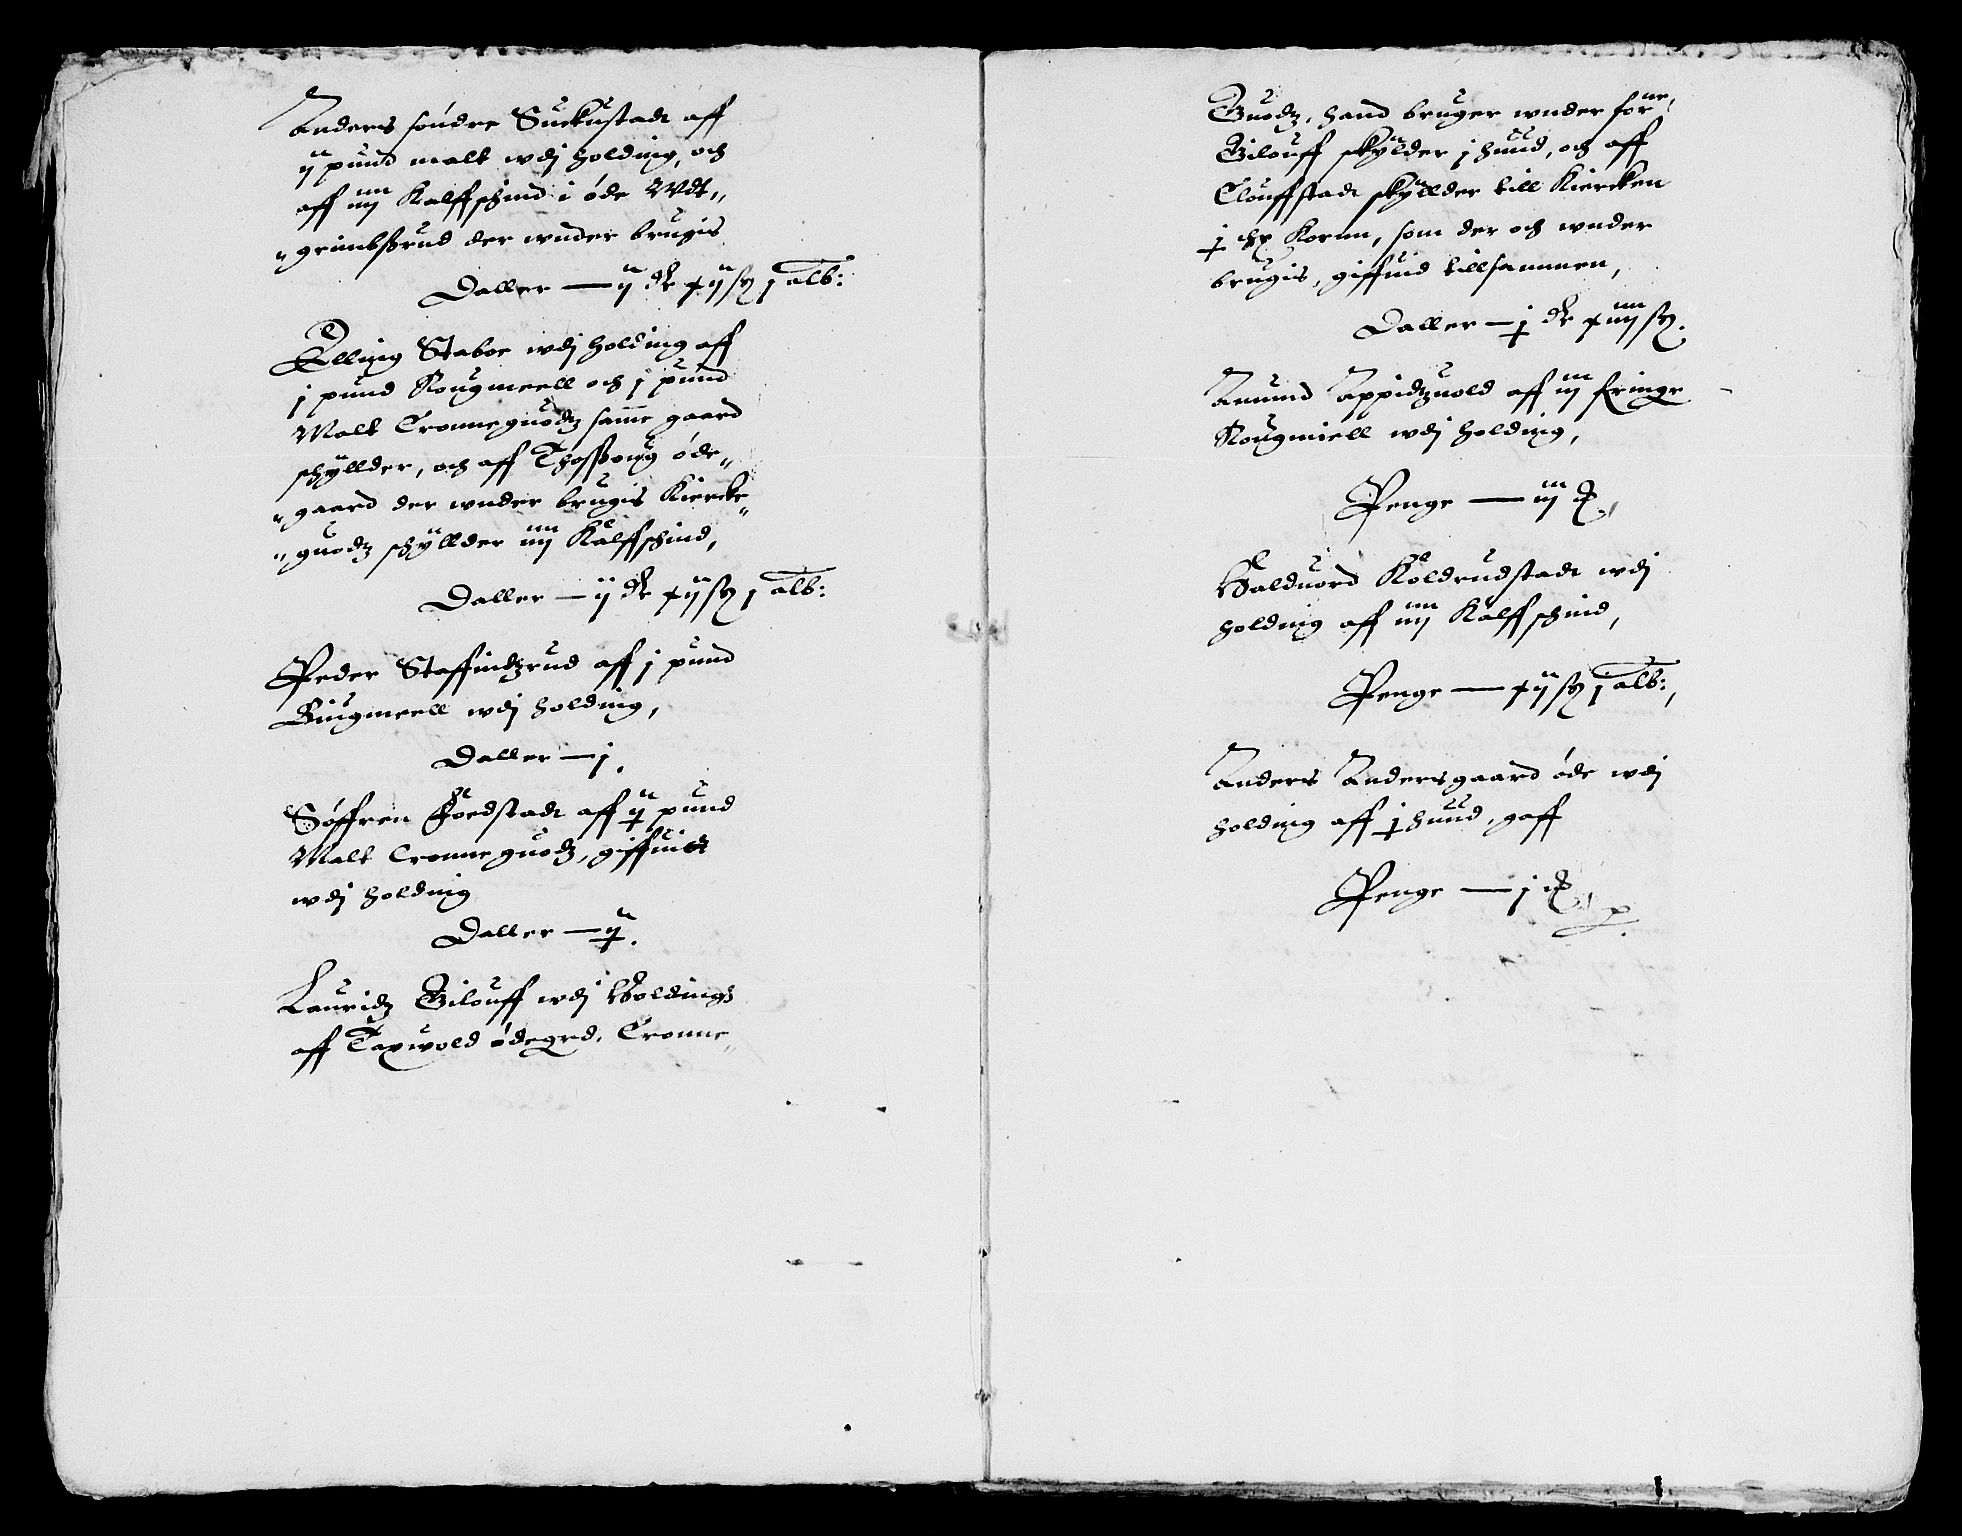 Anders søndre Suckustadt aff
ij pund malt wdj holding, och
aff iiij Kalffschind i øde Wdt„
„grimbsrud der wnder brugis
Daller — ij dr xij sz j alb:
Elling Staboe wdj holding aff
j pund Rougmeell och j pund
Malt Cronneguodz samme gaard
schyllder, och aff Thosszoug øde„
„gaard der wnder brugis Kiercke„
„guodz schyllder iiij Kalffschind,
Daller — ij dr xij sz j alb:
Peder Staffindzrud aff j pund
Biugmeell wdj holding,
Daller — j.
Søffren Foedstadt aff ij pund
Malt Cronneguodz, giffuidt
wdj holding
Daller — ij.
Lauridz Gilouff wdj Holdings
aff Taxwold ødegrd. Cronne„
Guodz, hand bruger wnder forne,
Gilouff skylder j huud, och aff
Clouffstadt skyllder till Kiercken
j Kornn, som der och wnder
brugis, giffuid tillsammen,
Daller — j dr xiiij sz.
Amund Appidzuold aff iij fringe
Rougmiell wdj holding,
Penge — iij
Halduord Koldrudstadt wdj
holding aff iiij Kalffschind,
Penge — xij sz j alb:,
Anders Andersgaard øde wdj
holding aff j huud, gaff
Penge — j